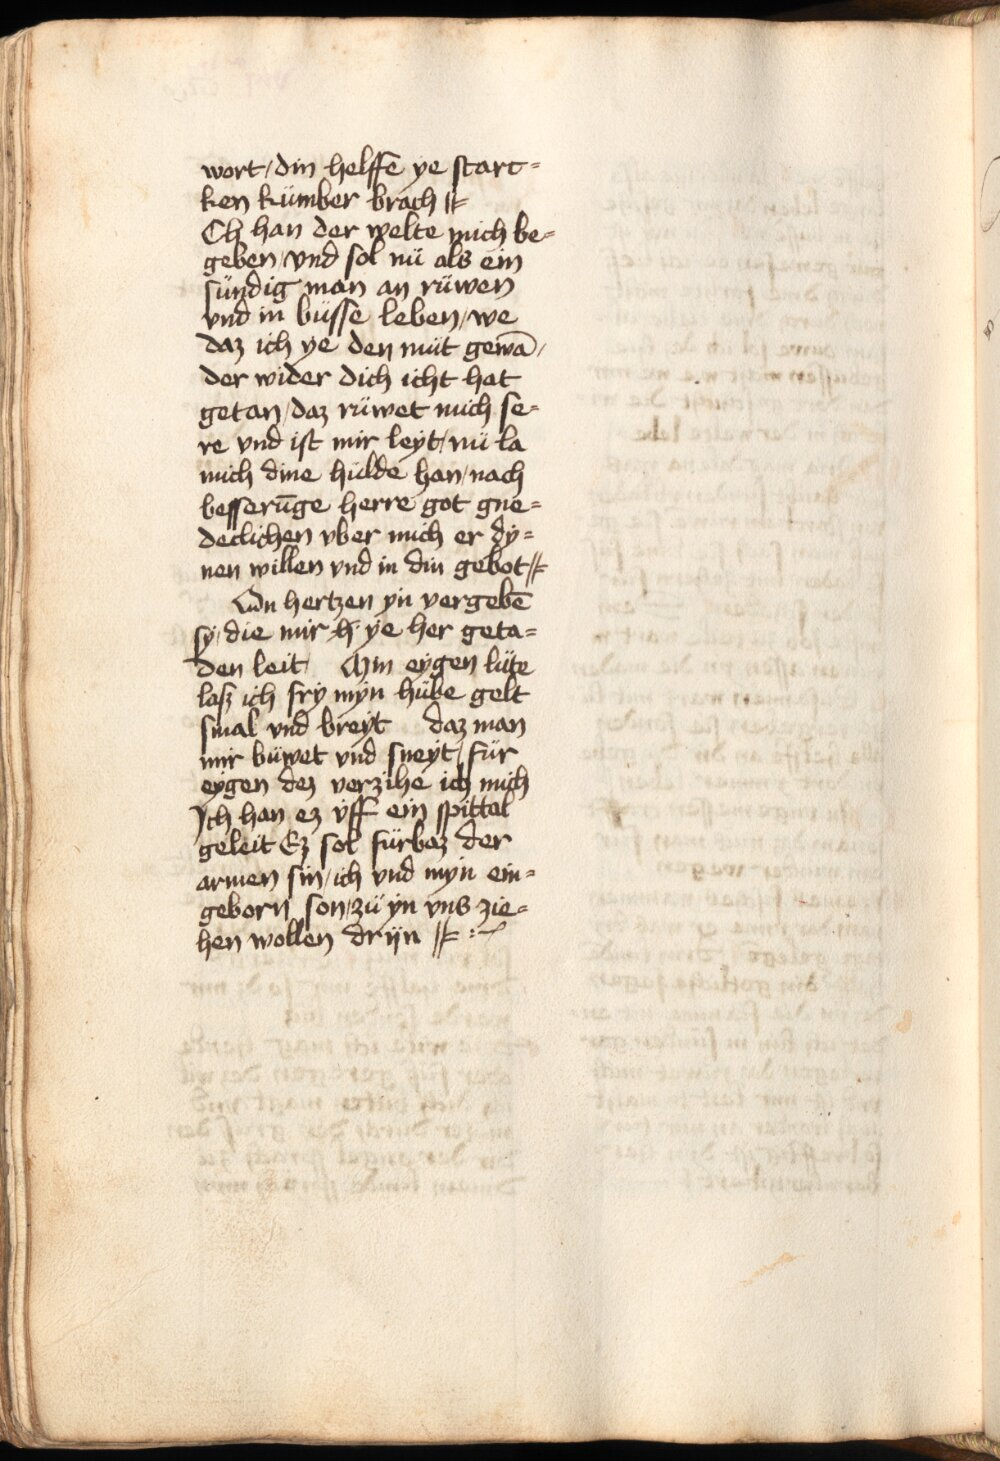 wort / din helffe ye starc=
ken kümber brach //
Ch han der welte mich be=
geben / vnd sol nü als ein
sündig man an rüwen
vnd in büsse leben / we
daz ich ye den müt gewā /
der wider dich icht hat
getan / daz rüwet mich se=
re vnd ist mir leyt / nü la
mich dine hülde han / nach
besserūge herre got gne=
declichen vber mich er dy=
nen willen vnd in din gebot //
Von hertzen yn vergebē
sy / die mir h ye her geta=
den leit / Min eygen lüte
lasz ich fry myn hübe gelt
smal vnd breyt daz man
mir büwet vnd sneyt / für
eygen dez verzihe ich mich
Ich han ez vff ein spittel
geleit Ez sol fürbaz der
armen sin / ich vnd myn ein=
geborn son / zü yn vns zie=
hen wollen drijn //